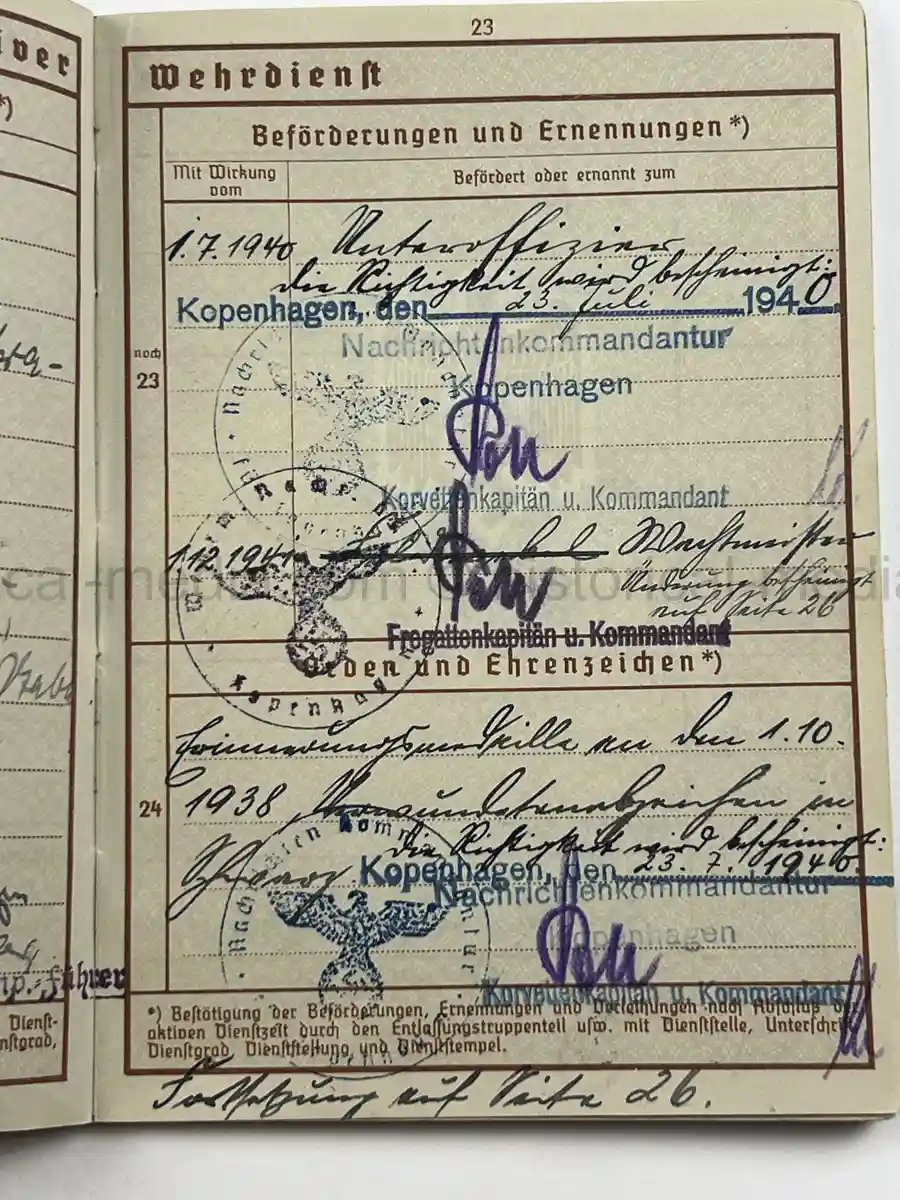 iver
*)
23
Wehrdienst
Beförderungen und Ernennungen *)
Mit Wirkung vom
Befördert oder ernannt zum
1.7.1940 Unteroffizier
die Richtigkeit wird bescheinigt:
Kopenhagen, den 23. Juli 1940
Nachrichtenkommandantur
noch 23
Kopenhagen
Korvettenkapitän u. Kommandant
1.12.1941 Wachtmeister
Änderung bescheinigt
auf Seite 26
Fregattenkapitän u. Kommandant
Orden und Ehrenzeichen *)
Erinnerungsmedaille an den 1.10.
24
1938 Verwundetenabzeichen in
die Richtigkeit wird bescheinigt:
Schwarz Kopenhagen, den 23. 7. 1940.
Nachrichtenkommandantur
Kopenhagen
Korvettenkapitän u. Kommandant
führer
*) Bestätigung der Beförderungen, Ernennungen und Verleihungen nach Abschluß
Dienst-
aktiven Dienstzeit durch den Entlassungstruppenteil usw. mit Dienststelle, Unterschrift
nstgrad,
Dienstgrad, Dienststellung und Dienststempel.
Fortsetzung auf Seite 26.